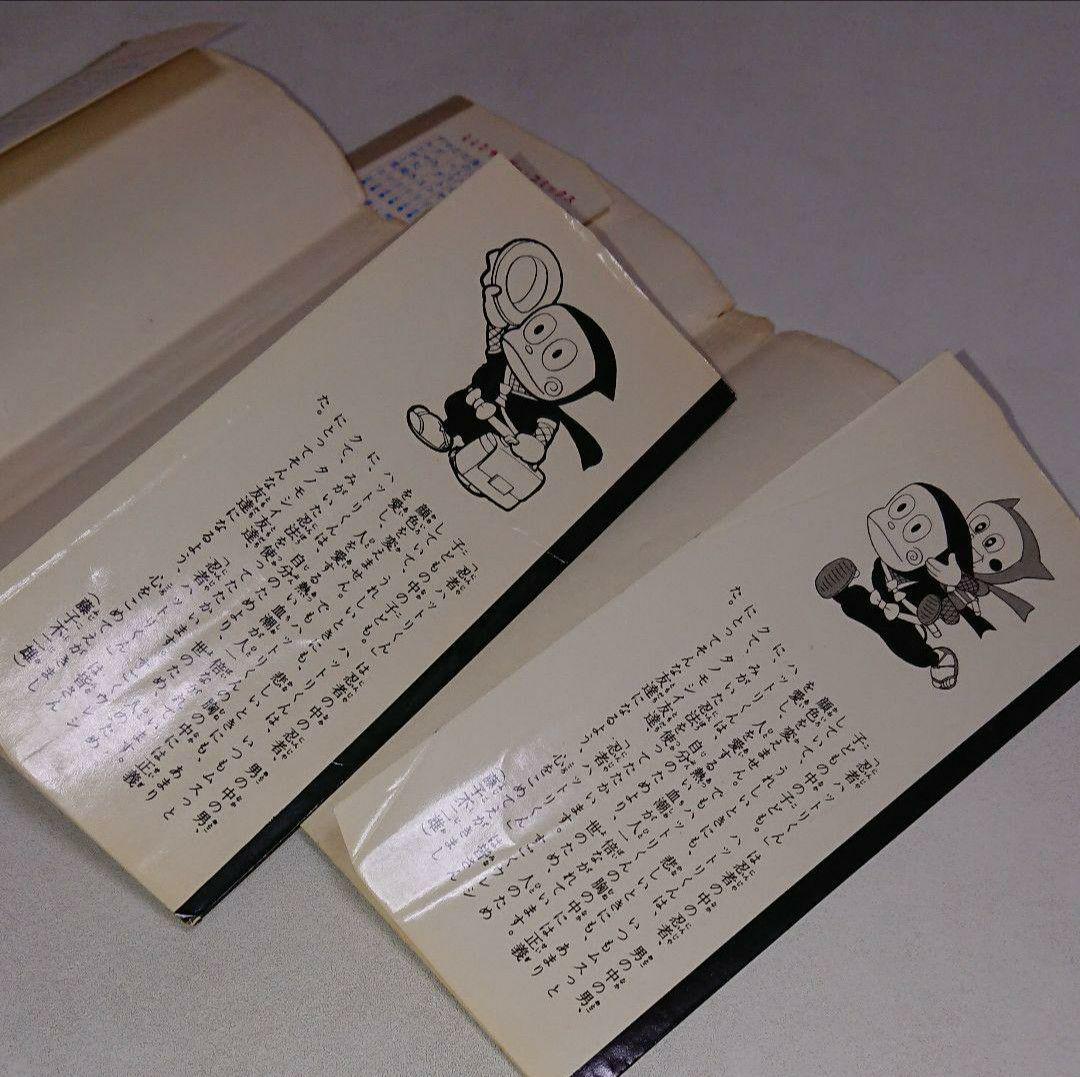 「忍者ハットリくん」は忍者の中の忍者、男の中の男、
子どもの中の子ども。ハットリくんは、いつもムスっと
して、うれしいときにも、悲しいときにも、あまり
顔色を変えません。でもハットリくんの胸の中には正義
を愛し、人を愛する熱い血潮が人一倍ながれています。
ハットリくんは、自分のためより、世のため、人のため
に、みがいた忍法を使ってたたかいます。すごくウレシ
クて、タノモシイ友達、「忍者ハットリくん」は皆さん
にとってそんな友達になるよう、心をこめてえがきまし
た。
(藤子不二雄)
「忍者ハットリくん」は忍者の中の忍者、男の中の男、
子どもの中の子ども。ハットリくんは、いつもムスっと
して、うれしいときにも、悲しいときにも、あまり
顔色を変えません。でもハットリくんの胸の中には正義
を愛し、人を愛する熱い血潮が人一倍ながれています。
ハットリくんは、自分のためより、世のため、人のため
に、みがいた忍法を使ってたたかいます。すごくウレシ
クて、タノモシイ友達、「忍者ハットリくん」は皆さん
にとってそんな友達になるよう、心をこめてえがきまし
た。
(藤子不二雄)
コミックス